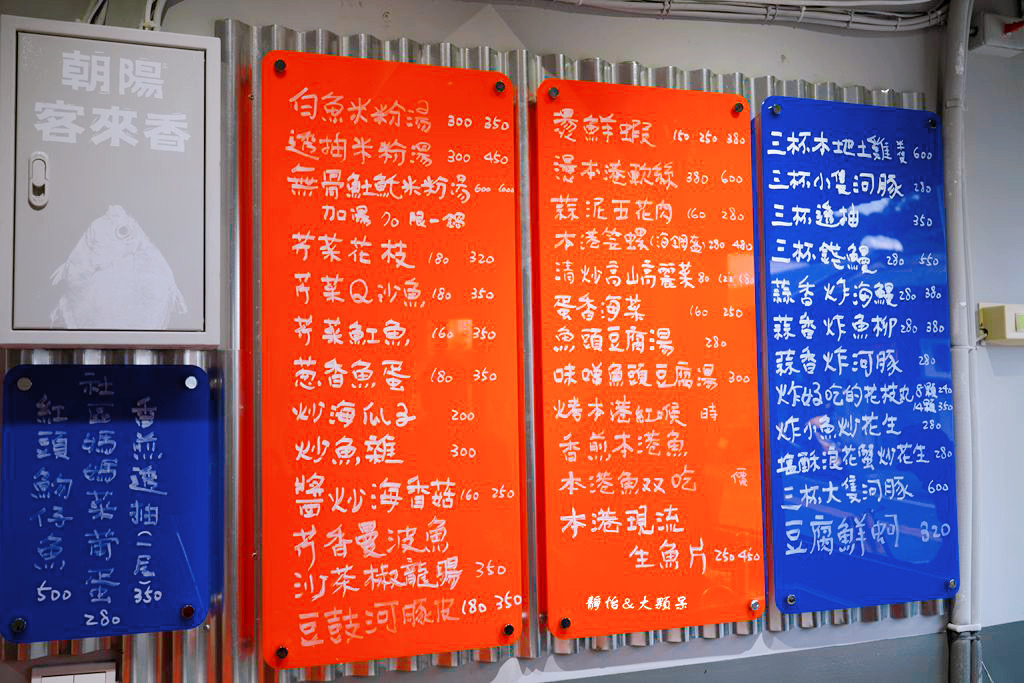 朝陽
客來香
香煎透抽(二尾)
350
社區媽媽菜前蛋
280
紅頭魩仔魚
500
白魚米粉湯 300 350
透抽米粉湯 300 450
無骨𩵚魠米粉湯 600
加湯70 限一鍋
芹菜花枝 180 320
芹菜Q沙魚 180 350
芹菜魟魚 160 350
葱香魚蛋 180 350
炒海瓜子 200
炒魚雜 300
醬炒海香菇 160 250
芹香曼波魚
沙茶椒龍腸 350
豆鼓河豚皮 180 350
燙鮮蝦 150 250 380
燙本港軟絲 380 600
蒜泥五花肉 160 280
本港苤螺(海鋼盔) 280 480
清炒高山高麗菜 80 120
蛋香海菜 160 250
魚頭豆腐湯 280
味噌魚頭豆腐湯 300
烤本港紅喉 時
香煎本港魚
本港魚双吃 價
本港現流
生魚片 250 450
靜怡&大頭呆
三杯本地土雞煲 600
三杯小隻河豚 280
三杯透抽 350
三杯鮀鰻 280 550
蒜香炸海鰻 280 380
蒜香炸魚柳 280 380
蒜香炸河豚 280
炸好吃的花枝丸 8顆240
14顆350
炸小魚炒花生 280
塩酥浪花蟹炒花生 280
三杯大隻河豚 600
豆腐鮮蚵 320